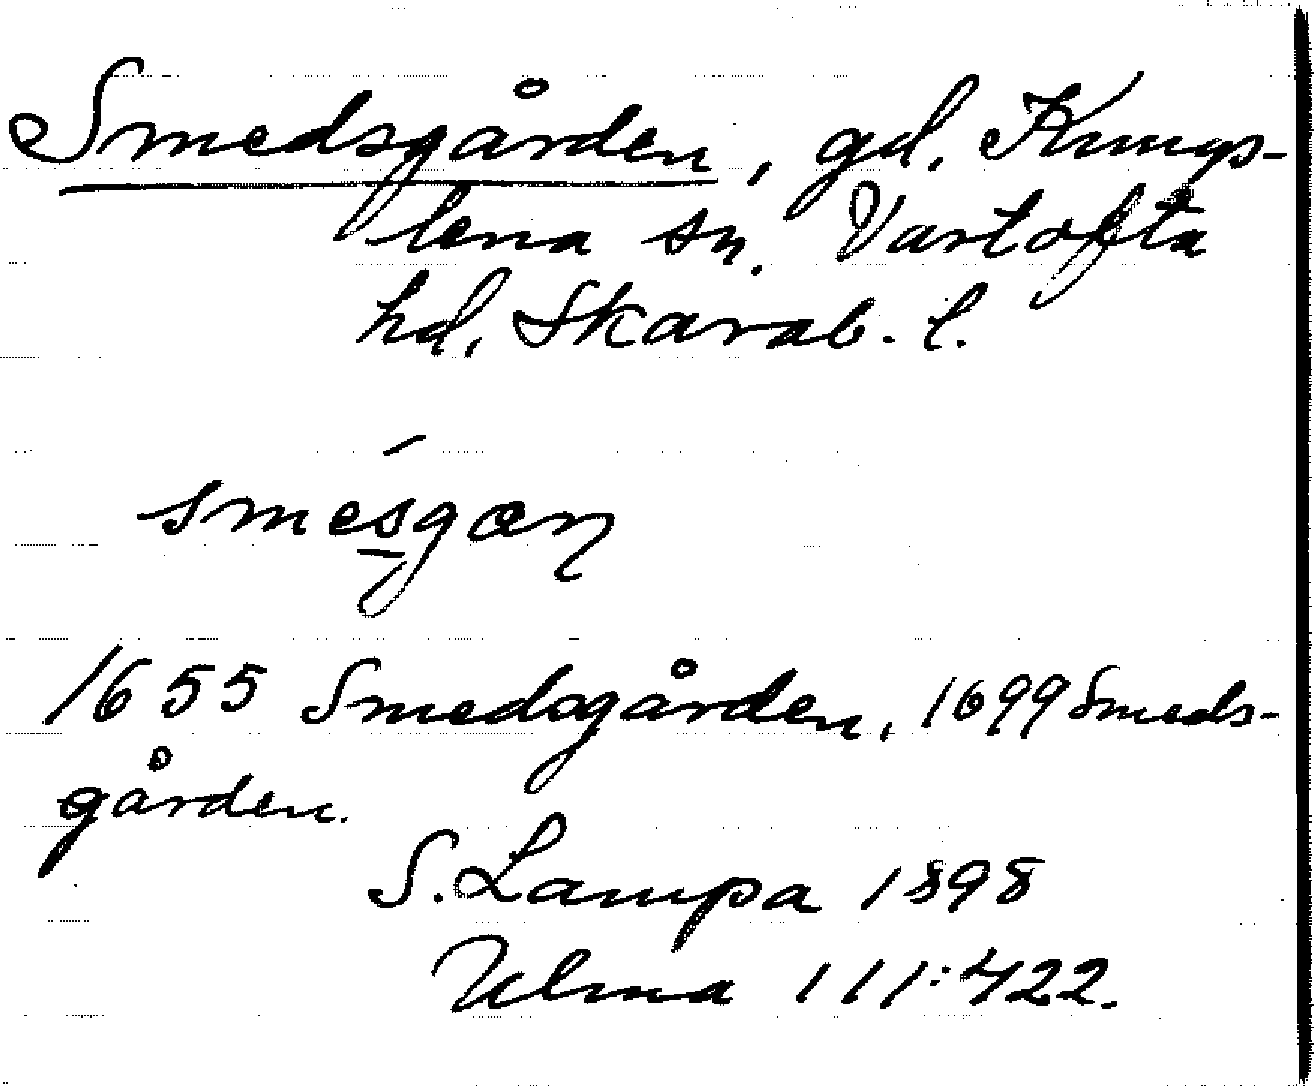 Smedsgården, gd. Kungs-
lena sn. Vartofta
hd, Skarab. l.
smesgæn
1655 Smedsgården, 1699 Smeds-
gården.
S. Lampa 1898
Ulma 111:422.